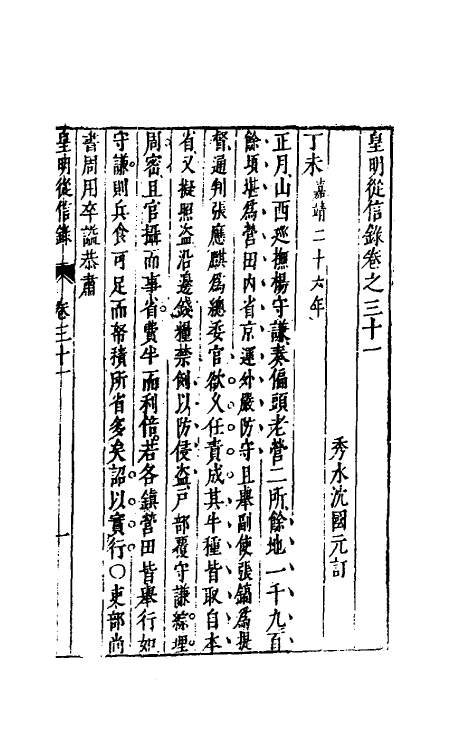 皇明從信錄卷之三十一
秀水沈國元訂
丁未嘉靖二十六年
正月山西廵撫楊守謙奏偏頭老營二所餘地一千九百
餘頃堪爲營田內省京運外嚴防守且舉副使張鎬爲提
督通判張應麒爲總委官欲久任責成其牛種皆取自本
省又擬照盗沿邊錢糧禁例以防侵盗戸部覆守謙綜理
周密且官攝而事省費半而利倍若各鎮營田皆舉行如
守謙則兵食可足而帑積所省多矣詔以實行○吏部尚
書周用卒諡恭肅
皇明從信錄 卷三十一 一